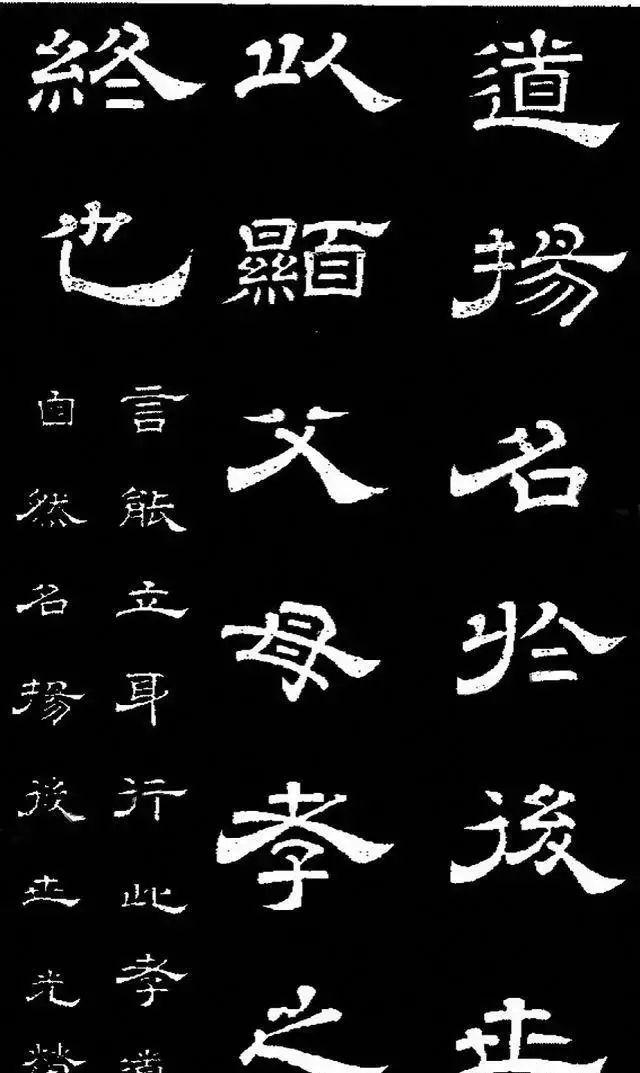 道揚名於後世
以顯父母孝之
終也
言能立身行此孝道
自然名揚後世光榮